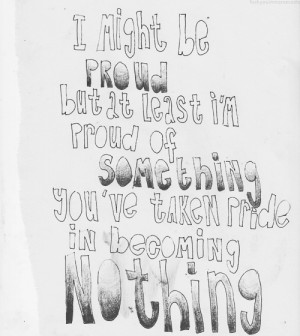 I Might be
PROUD
but at least i'm
proud of
SOMETHING
you've taken pride
in becoming
NOthing